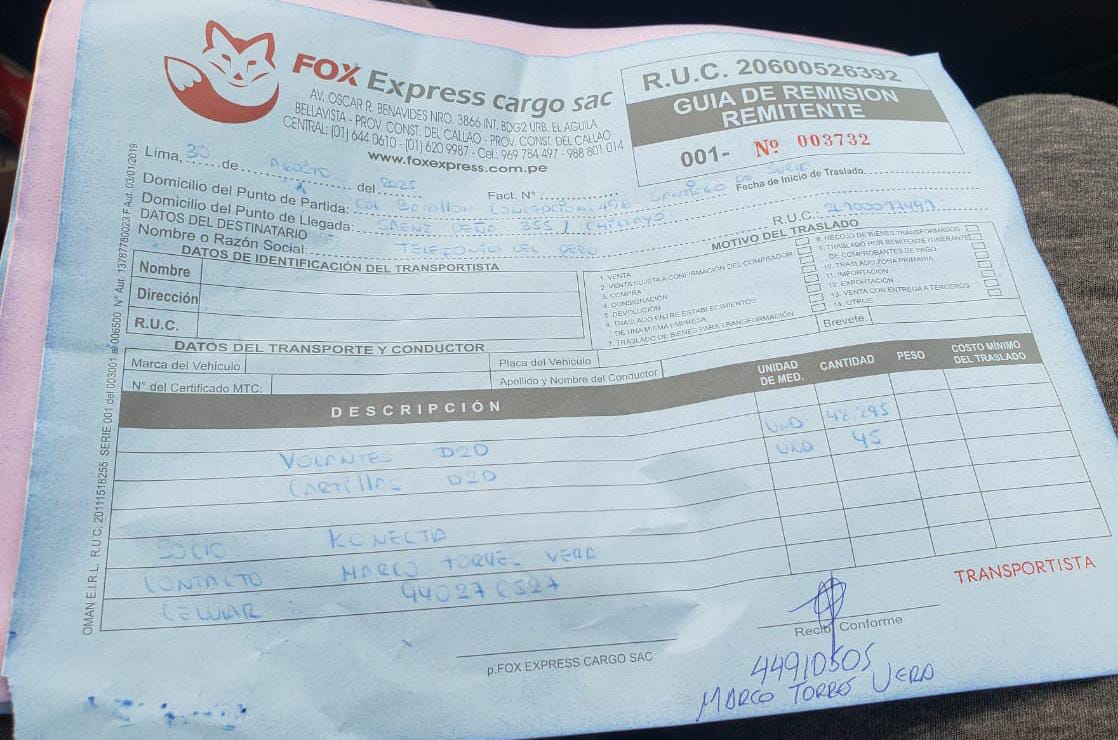 FOX Express cargo sac
AV. OSCAR R. BENAVIDES NRO. 3866 INT. BDG2 URB. EL AGUILA
BELLAVISTA - PROV. CONST. DEL CALLAO - PROV. CONST. DEL CALLAO
CENTRAL: (01) 644 0610 - (01) 620 9987 - Cel.: 969 784 497 - 988 801 014
www.foxexpress.com.pe
R.U.C. 20600526392
GUIA DE REMISION
REMITENTE
001- Nº 003732
Lima, 30 de AGOSTO del 2025 Fact. N° Fecha de Inicio de Traslado
Domicilio del Punto de Partida: CAL BATALLON CONCEPCION 496 SANTIAGO DE SURCO
Domicilio del Punto de Llegada: SAENZ PEÑA 355 / CHICLAYO
DATOS DEL DESTINATARIO R.U.C.:
Nombre o Razón Social: TELEFONICA DEL PERU
DATOS DE IDENTIFICACIÓN DEL TRANSPORTISTA
Nombre
Dirección
R.U.C.
MOTIVO DEL TRASLADO
1. VENTA
2. VENTA SUJETA A CONFIRMACIÓN DEL COMPRADOR
3. COMPRA
4. CONSIGNACIÓN
5. DEVOLUCIÓN
6. TRASLADO ENTRE ESTABLECIMIENTOS
DE UNA MISMA EMPRESA
7. TRASLADO DE BIENES PARA TRANSFORMACIÓN
8. RECOJO DE BIENES TRANSFORMADOS
9. TRASLADO POR REMITENTE ITINERANTE
DE COMPROBANTES DE PAGO
10. TRASLADO ZONA PRIMARIA
11. IMPORTACIÓN
12. EXPORTACIÓN
13. VENTA CON ENTREGA A TERCEROS
14. OTROS
DATOS DEL TRANSPORTE Y CONDUCTOR Brevete:
Marca del Vehículo Placa del Vehículo
N° del Certificado MTC: Apellido y Nombre del Conductor
DESCRIPCIÓN UNIDAD DE MED. CANTIDAD PESO COSTO MÍNIMO DEL TRASLADO
VOLANTES D2D UND 48,295
CARTILLAS D2D UND 45
SOCIO KONECTA
CONTACTO MARCO TORRES VERA
CELULAR 940276527
TRANSPORTISTA
Recibí Conforme
p.FOX EXPRESS CARGO SAC
44910505
MARCO TORRES VERA
OMAN E.I.R.L. R.U.C. 20111518255 SERIE 001 del 003001 al 006500 N° Aut. 13787780023 F.Aut. 03/01/2019